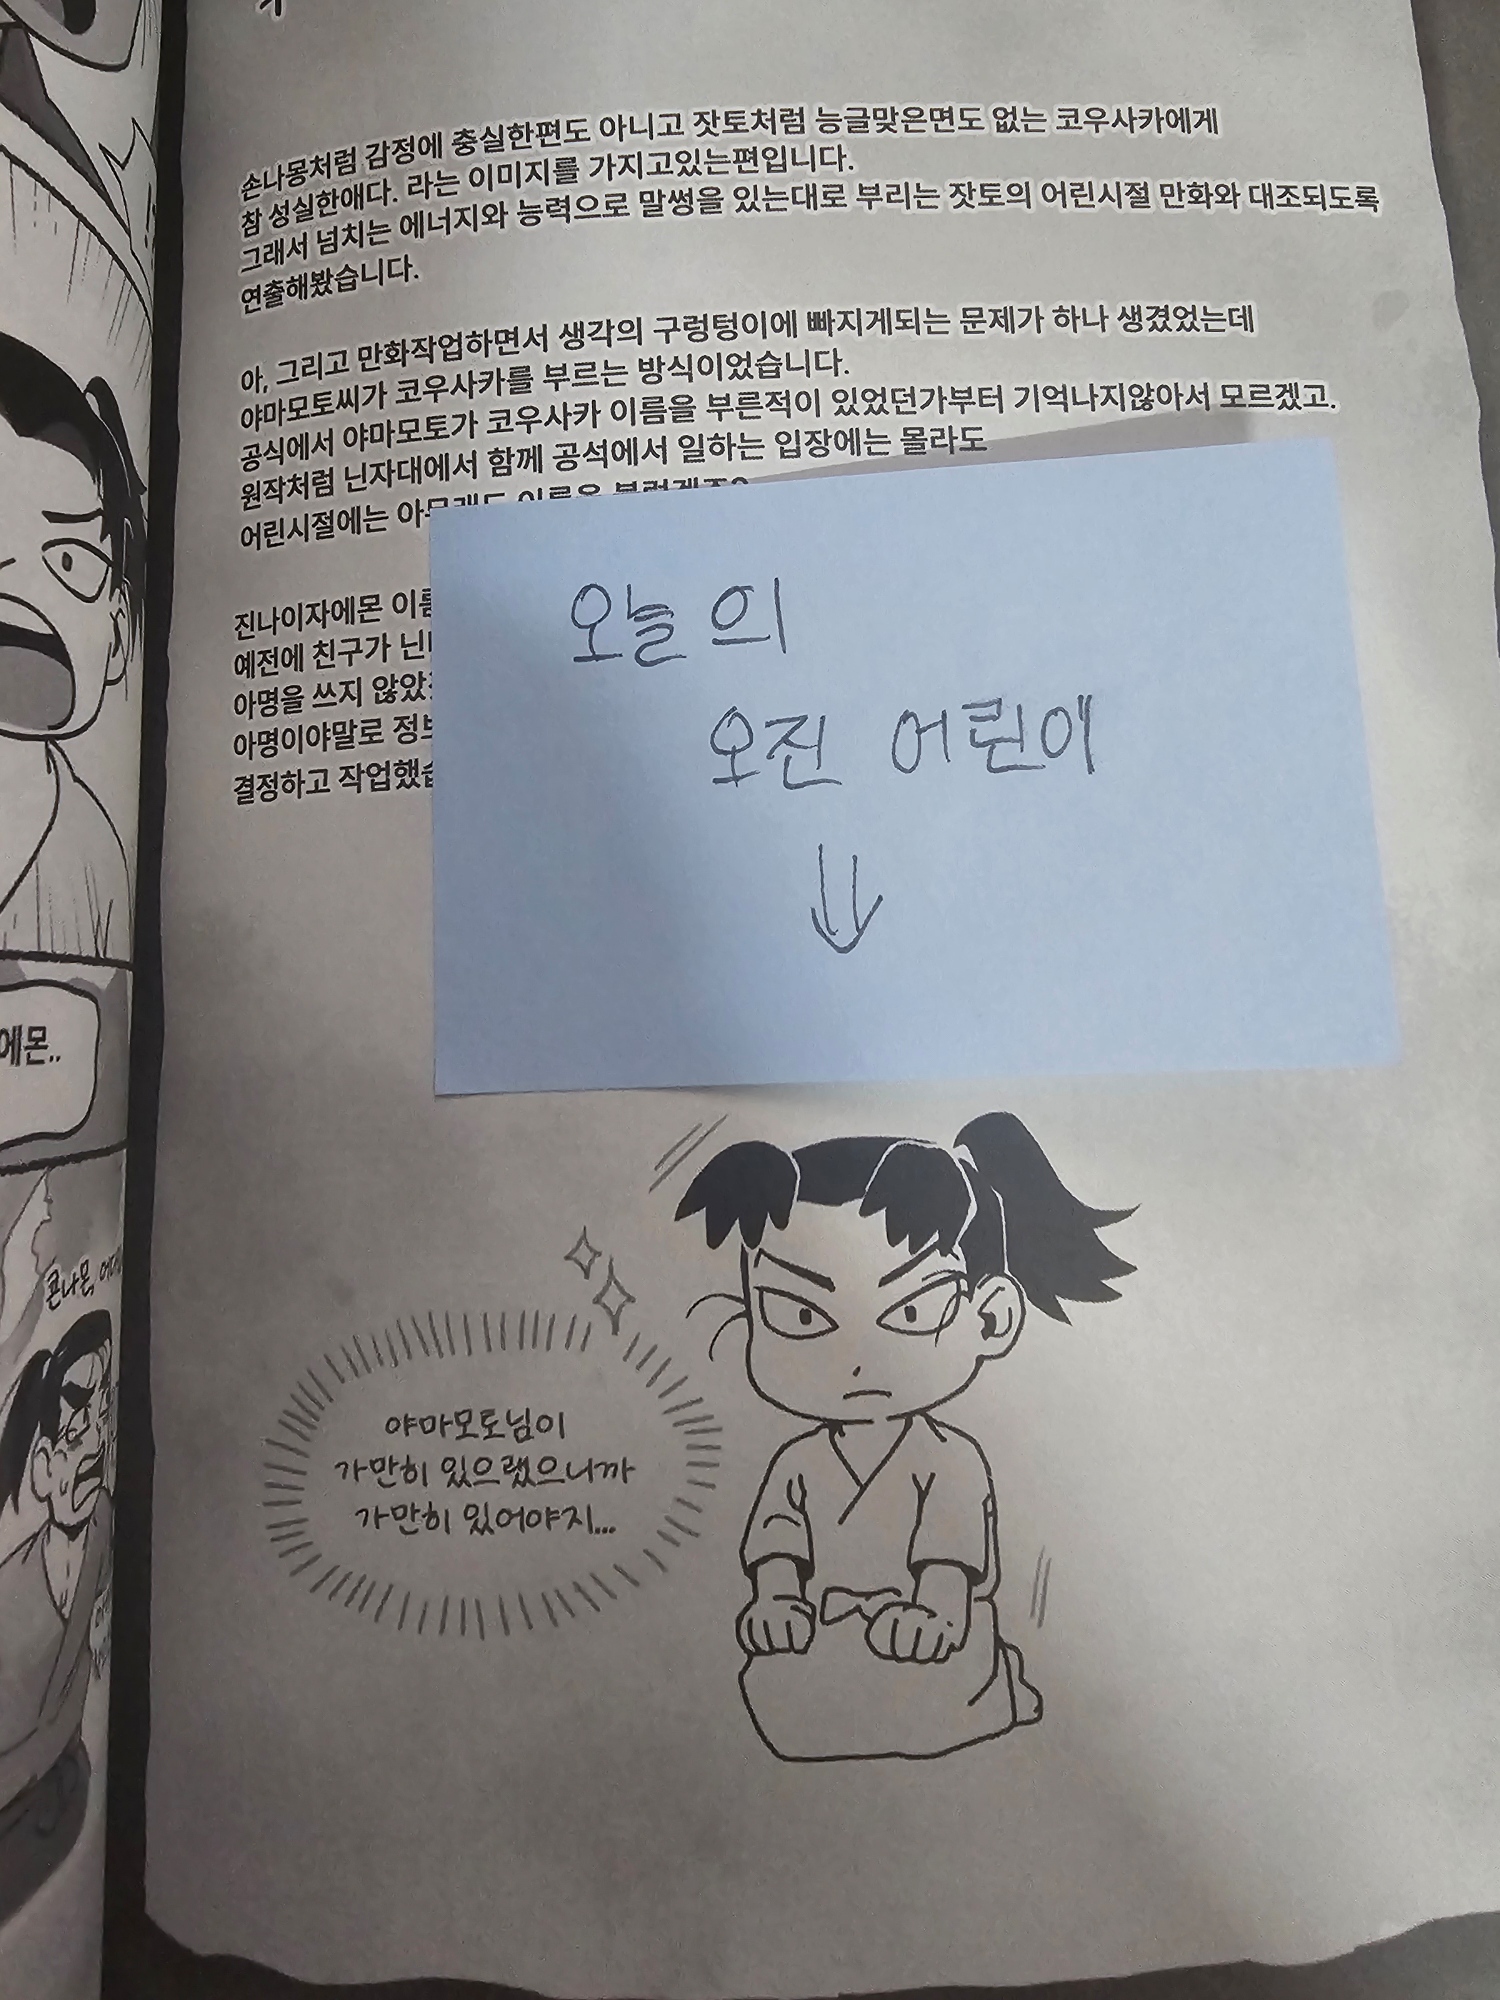 손나몽처럼 감정에 충실한편도 아니고 잣토처럼 능글맞은면도 없는 코우사카에게
참 성실한애다. 라는 이미지를 가지고있는편입니다.
그래서 넘치는 에너지와 능력으로 말썽을 있는대로 부리는 잣토의 어린시절 만화와 대조되도록
연출해봤습니다.
아, 그리고 만화작업하면서 생각의 구렁텅이에 빠지게되는 문제가 하나 생겼었는데
야마모토씨가 코우사카를 부르는 방식이었습니다.
공식에서 야마모토가 코우사카 이름을 부른적이 있었던가부터 기억나지않아서 모르겠고.
원작처럼 닌자대에서 함께 공석에서 일하는 입장에는 몰라도
어린시절에는 아무래도 이름을 불렀겠죠?
진나이자에몬 이름
예전에 친구가
아명을 쓰지 않았
아명이야말로
결정하고 작업했습
오늘의
오진 어린이
에몬..
콘나몬,
야마모토님이
가만히 있으랬으니까
가만히 있어야지...